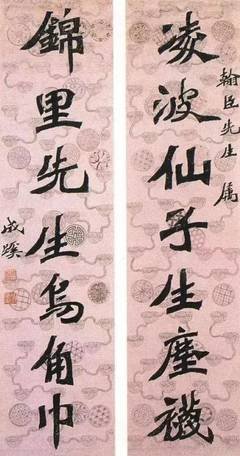 凌波仙子生塵襪
翰臣先生 属
錦里先生烏角巾
成蹊